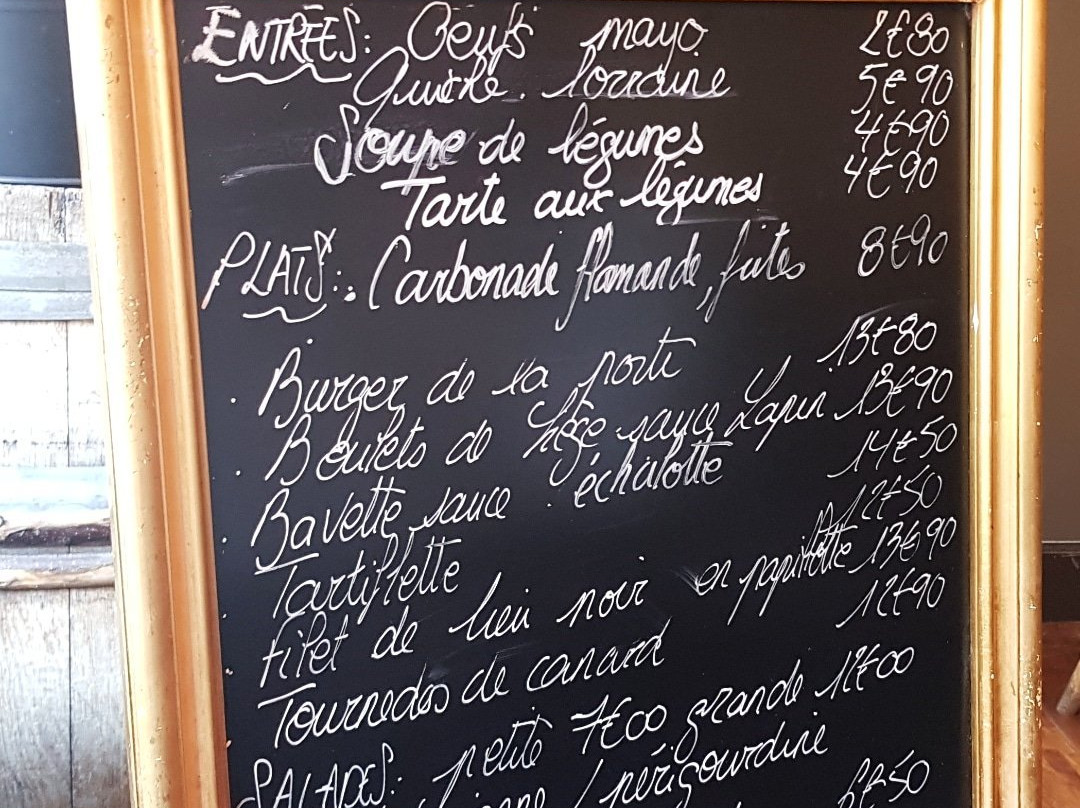 ENTRÉES: Oeufs mayo 2€80
Quiche lorraine 5€90
Soupe de légumes 4€90
Tarte aux légumes 4€90
PLATS: Carbonade flamande, frites 8€90
Burger de la porte 13€80
Boulets de liège sauce Lapin 13€90
Bavette sauce échalotte 14€50
Tartiflette 12€50
filet de lieu noir en papillotte 13€90
Tournedos de canard 12€90
SALADES: petite 7€00 grande 12€00
/ périgourdine
€50